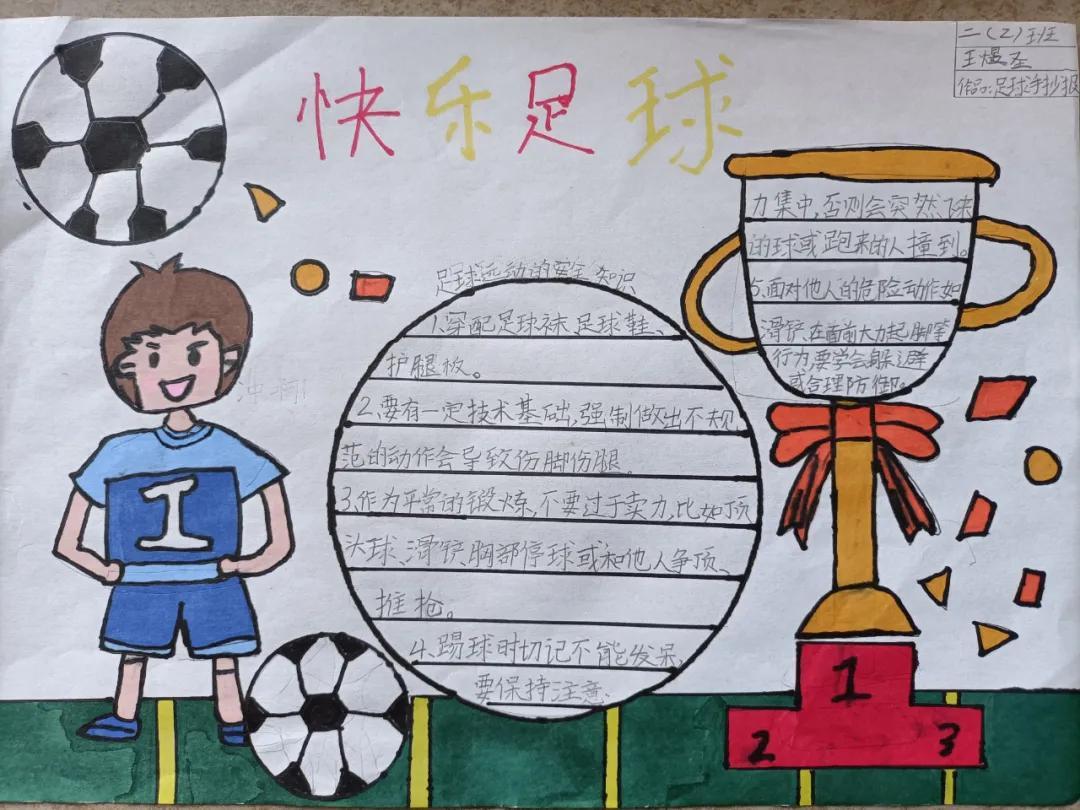 快乐足球
二(2)班
王煜圣
作品:足球手抄报
足球运动的安全知识
1.穿配足球袜、足球鞋、
护腿板。
2.要有一定技术基础,强制做出不规
范的动作会导致伤脚伤腿。
3.作为平常的锻炼,不要过于卖力,比如顶
头球、滑铲、胸部停球或和他人争顶、
推抢。
4.踢球时切记不能发呆,
要保持注意
力集中,否则会突然飞来
的球或跑来的人撞到。
5.面对他人的危险动作如
滑铲、在面前大力起脚等
行为要学会躲避
或合理防御。
1
1
2
3